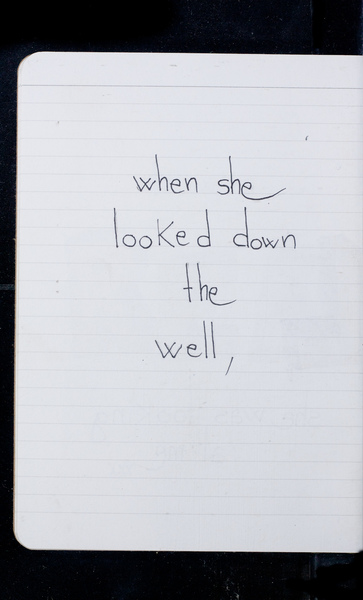 when she
looked down
the
well,